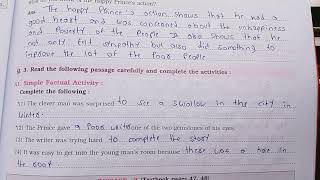 of the Happy Prince's action?
Ans. The happy Prince's action shows that he had a
good heart and was concerned about the unhappiness
and Poverty of the People. It also shows that he
not only felt sympathy but also did something to
improve the lot of the Poor People
3. Read the following passage carefully and complete the activities :
Simple Factual Activity :
Complete the following :
(1) The clever man was surprised to see a swallow in the city in
winter.
(2) The Prince gave a Poor write one of the two gemstones of his eyes.
(3) The writer was trying hard to complete the story
(4) It was easy to get into the young man's room because there was a hole in
the roof
(Textbook pages 47, 48)